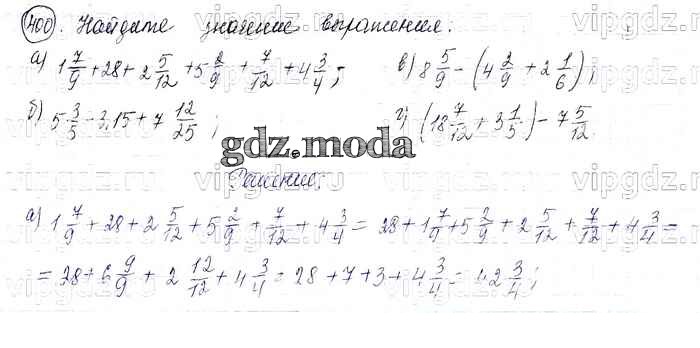 400. Найдите значение выражения.
а) 1 7/9 + 28 + 2 5/12 + 5 2/9 + 7/12 + 4 3/4; в) 8 5/9 - (4 2/9 + 2 1/6);
б) 5 3/5 - 3,15 + 7 12/25; г) (18 7/12 + 3 1/5) - 7 5/12.
gdz.moda
Решение:
а) 1 7/9 + 28 + 2 5/12 + 5 2/9 + 7/12 + 4 3/4 = 28 + 1 7/9 + 5 2/9 + 2 5/12 + 7/12 + 4 3/4 =
= 28 + 6 9/9 + 2 12/12 + 4 3/4 = 28 + 7 + 3 + 4 3/4 = 42 3/4;